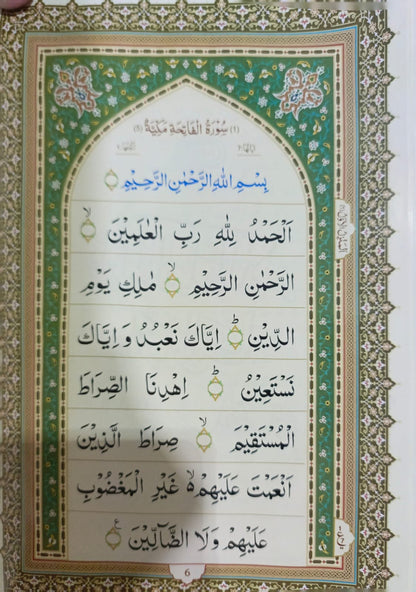 (۱) سُوْرَةُ الْفَاتِحَةِ مَكِّيَّةٌ (۵)
بِسْمِ اللّٰهِ الرَّحْمٰنِ الرَّحِيْمِ
اَلْحَمْدُ لِلّٰهِ رَبِّ الْعٰلَمِيْنَ ۙ
الرَّحْمٰنِ الرَّحِيْمِ ۙ مٰلِكِ يَوْمِ
الدِّيْنِ ؕ اِيَّاكَ نَعْبُدُ وَ اِيَّاكَ
نَسْتَعِيْنُ ؕ اِهْدِنَا الصِّرَاطَ
الْمُسْتَقِيْمَ ۙ صِرَاطَ الَّذِيْنَ
اَنْعَمْتَ عَلَيْهِمْ ۙ غَيْرِ الْمَغْضُوْبِ
عَلَيْهِمْ وَلَا الضَّآلِّيْنَ
6